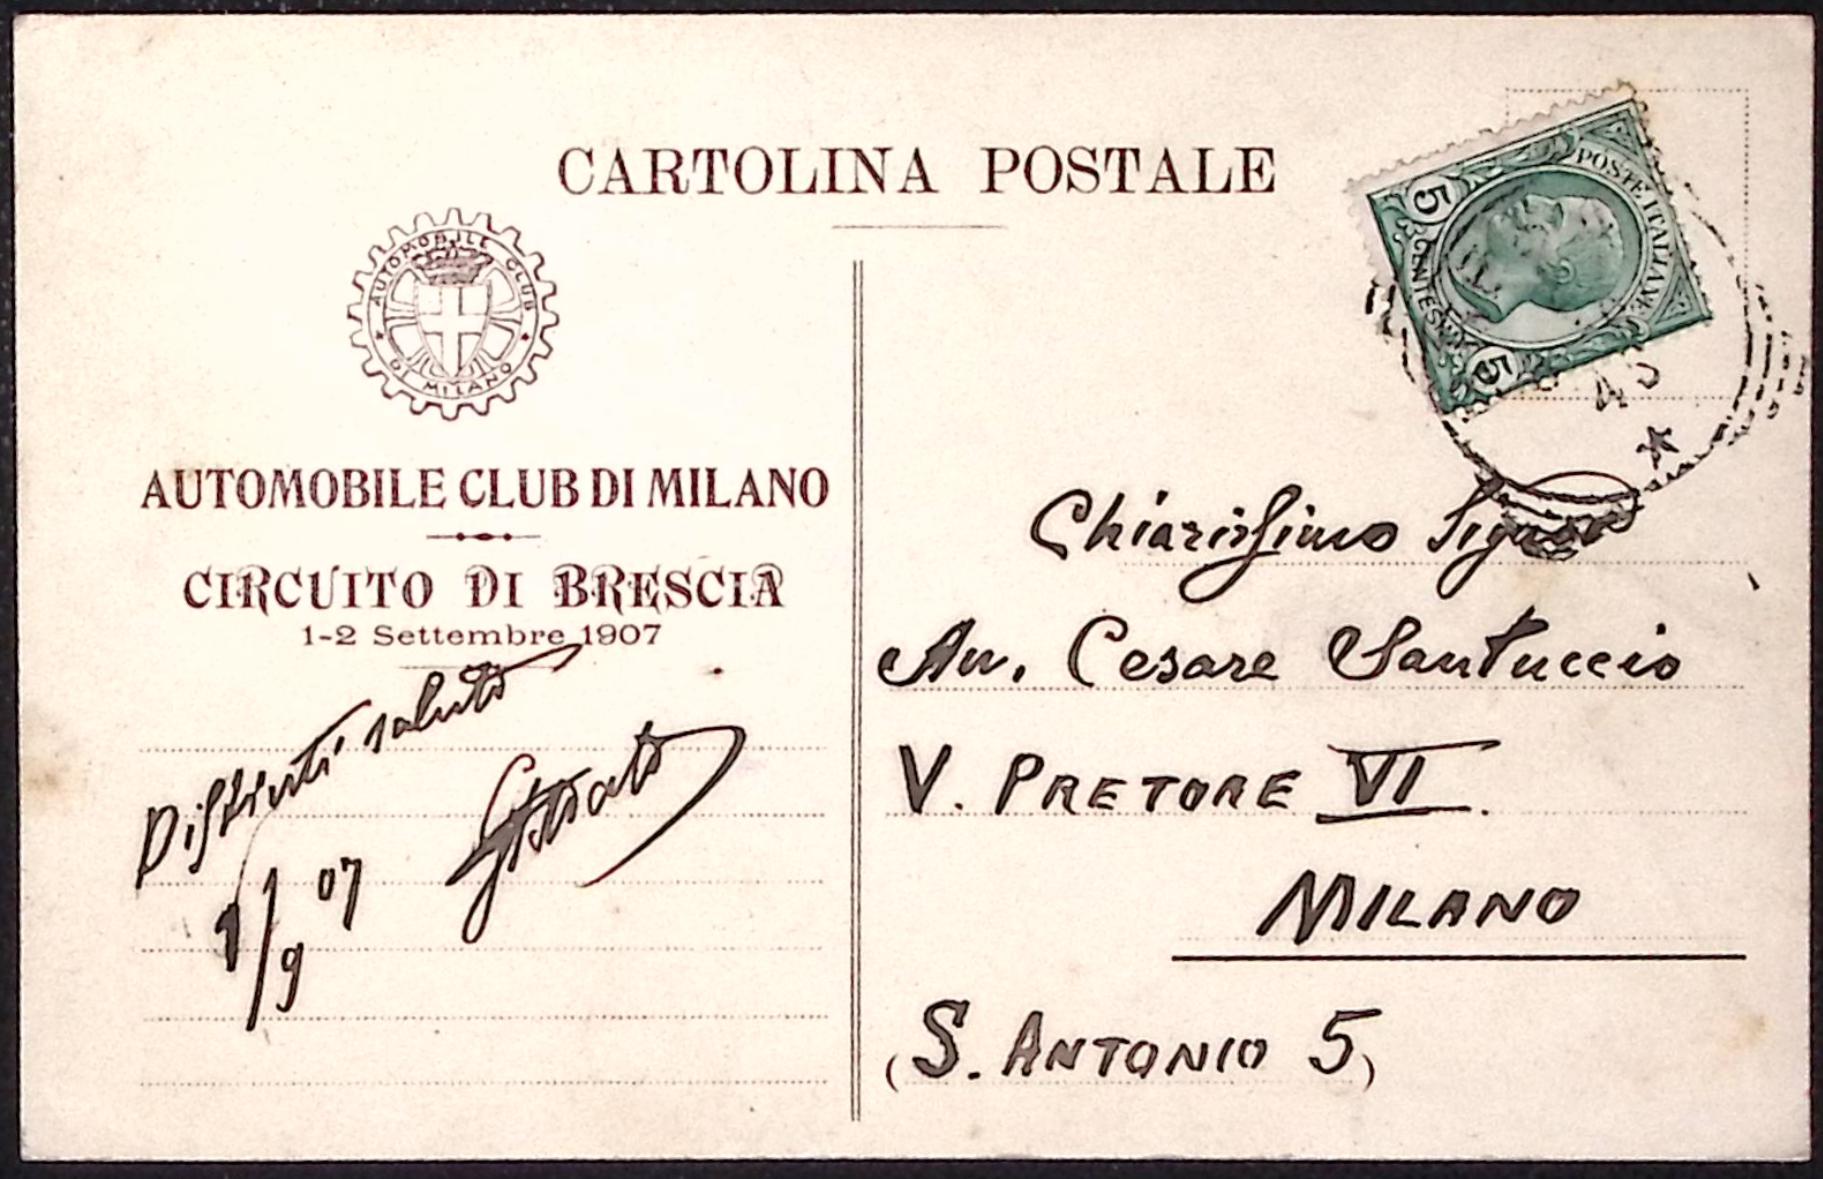 CARTOLINA POSTALE
AUTOMOBILE CLUB
DI MILANO
AUTOMOBILE CLUB DI MILANO
CIRCUITO DI BRESCIA
1-2 Settembre 1907
Distinti saluti
1/9 07
POSTE ITALIANE
5
CENTESIMI
5
Chiarissimo Signor
Av. Cesare Santuccio
V. PRETORE VI.
MILANO
(S. ANTONIO 5)